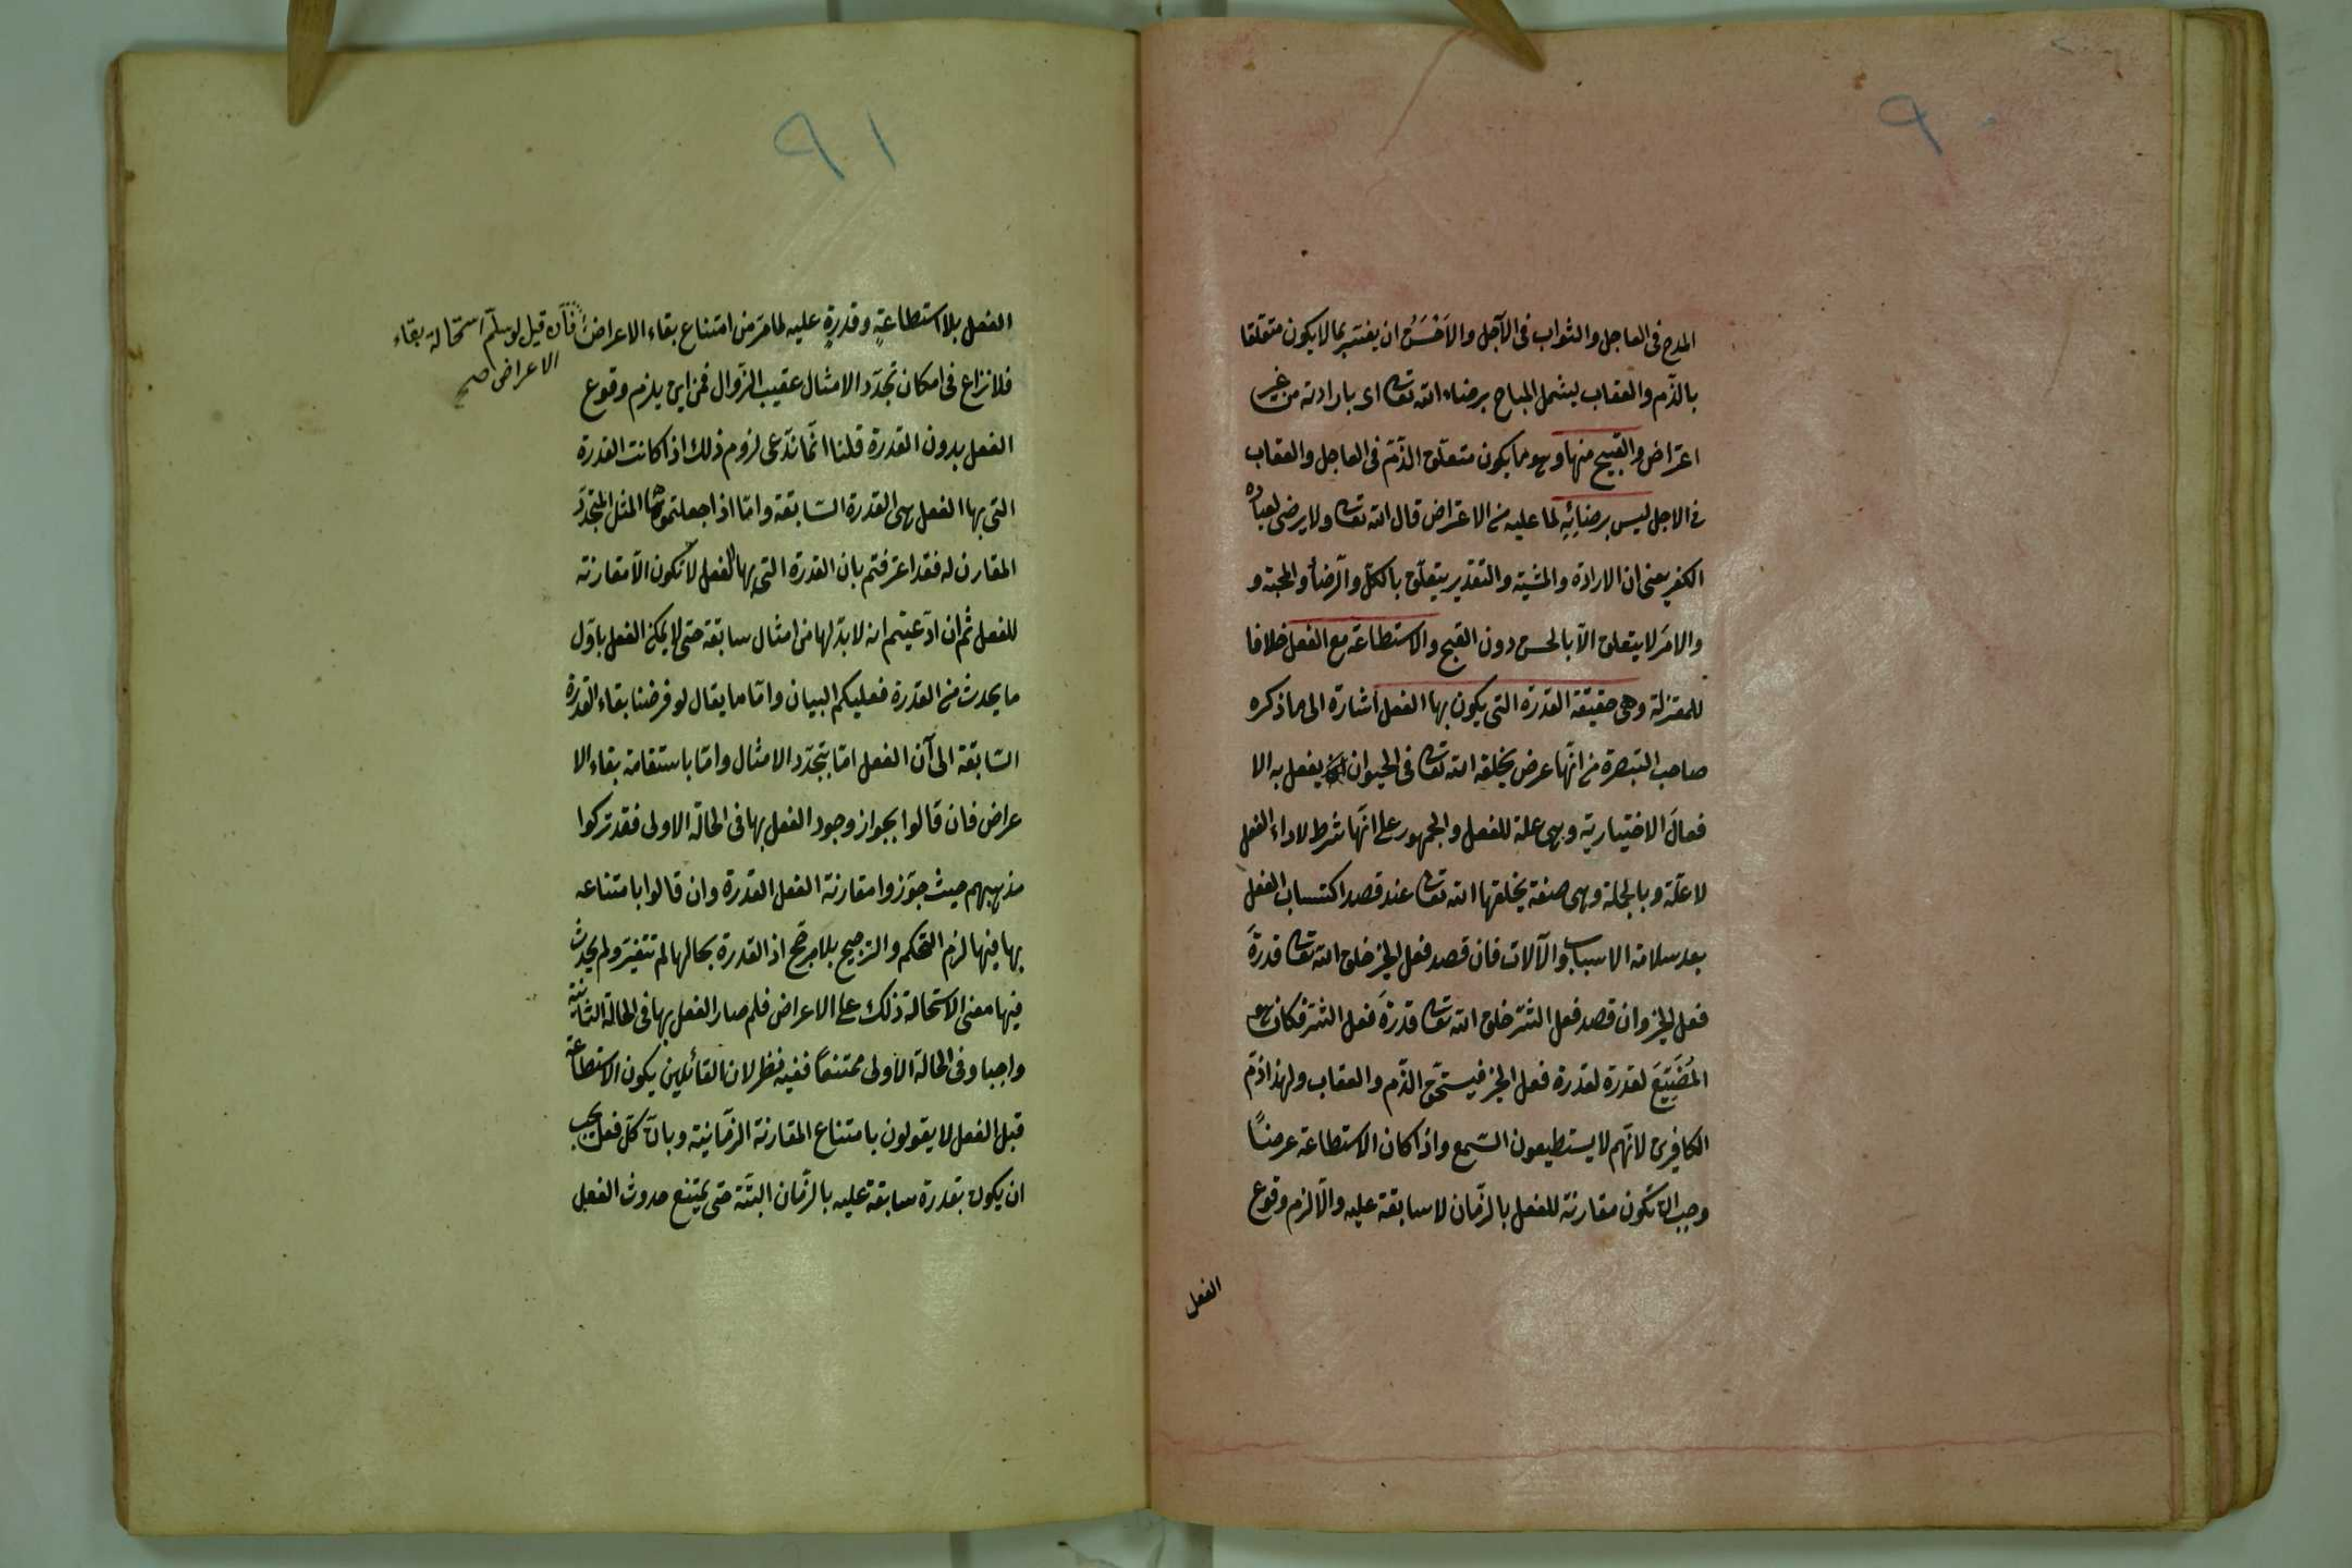 ٩٠
المدح فى العاجل والثواب فى الآجل والاَحْسَنُ ان يفسّر بما لا يكون متعلقا
بالذّم والعقاب ليشمل المباح برضاء الله تعا اى بارادته من غير
اعتراض والقبيح منها وهو ما يكون متعلق الذّم فى العاجل والعقاب
فى الاجل ليس برضائِهِ لما عليه من الاعتراض قال الله تعا ولا يرضى لعباده
الكفر يعنى ان الارادة والمشية والتقدير يتعلّق بالكلّ والرّضأ والمحبة و
والامر لا يتعلق الّا بالحسن دون القبيح والاستطاعة مع الفعل خلافا
للمعتزلة وهى حقيقة القدرة التى يكون بها الفعل اشارة الى ما ذكره
صاحب التبصرة من انّها عرض يخلقه الله تعا فى الحيوان يفعل به الا
فعالَ الاختيارية وهى علة للفعل والجمهور على انّها شرط لاداء الفعل
لا علّة وبالجملة وهى صفة يخلقها الله تعا عند قصد اكتساب الفعل
بعد سلامة الاسباب والآلات فان قصد فعل الخير خلق الله تعا قدرةَ
فعل الخير وان قصد فعل الشرّ خلق الله تعا قدرةَ فعل الشرّ فكان هو
المُضَيِّعَ لقدرة لقدرة فعل الخير فيستحقّ الذّم والعقاب ولهذا ذمّ
الكافرين لانّهم لا يستطيعون السّمع واذا كان الاستطاعة عرضاً
وجب ان تكون مقارنة للفعل بالزّمان لا سابقة عليه والّا لزم وقوع
الفعل
٩١
الفعل بلا استطاعةٍ وقدرةٍ عليه لما مرّ من امتناع بقاء الاعراض فأن قيل لو سلّم استحالة بقاء
الاعراض صح
فلا نزاع فى امكان تجدّد الامثال عقيب الزّوال فمن اين يلزم وقوع
الفعل بدون القدرة قلنا انّما ندّعى لزوم ذلك اذا كانت القدرة
التى بها الفعل هى القدرة السّابقة وامّا اذا جعلتموها المثل المتجدّد
المقارن له فقد اعترفتم بان القدرة التى بها الفعل لا تكون الّا مقارنة
للفعل ثم ان ادّعيتم انه لا بدّ لها من امثال سابقة حتى لا يمكن الفعل باوّل
ما يحدث من القدرة فعليكم البيان وامّا ما يقال لو فرضنا بقاء القدرة
السّابقة الى آن الفعل امّا بتجدّد الامثال وامّا باستقامة بقاء الا
عراض فان قالوا بجواز وجود الفعل بها فى الحالة الاولى فقد تركوا
مذهبهم حيث جوّزوا مقارنة الفعل القدرة وان قالوا بامتناعه
بها فيها لزم التحكم والترجيح بلا مرجّح اذ القدرة بحالها لم تتغيّر ولم يحدث
فيها معنى لاستحالة ذلك على الاعراض فلم صار الفعل بها فى الحالة الثانية
واجبا وفى الحالة الاولى ممتنعاً ففيه نظر لان القائلين بكون الاستطاعة
قبل الفعل لا يقولون بامتناع المقارنة الزّمانيّة وبان كلّ فعل يجب
ان يكون بقدرة سابقة عليه بالزّمان البتّة حتى يمتنع حدوث الفعل